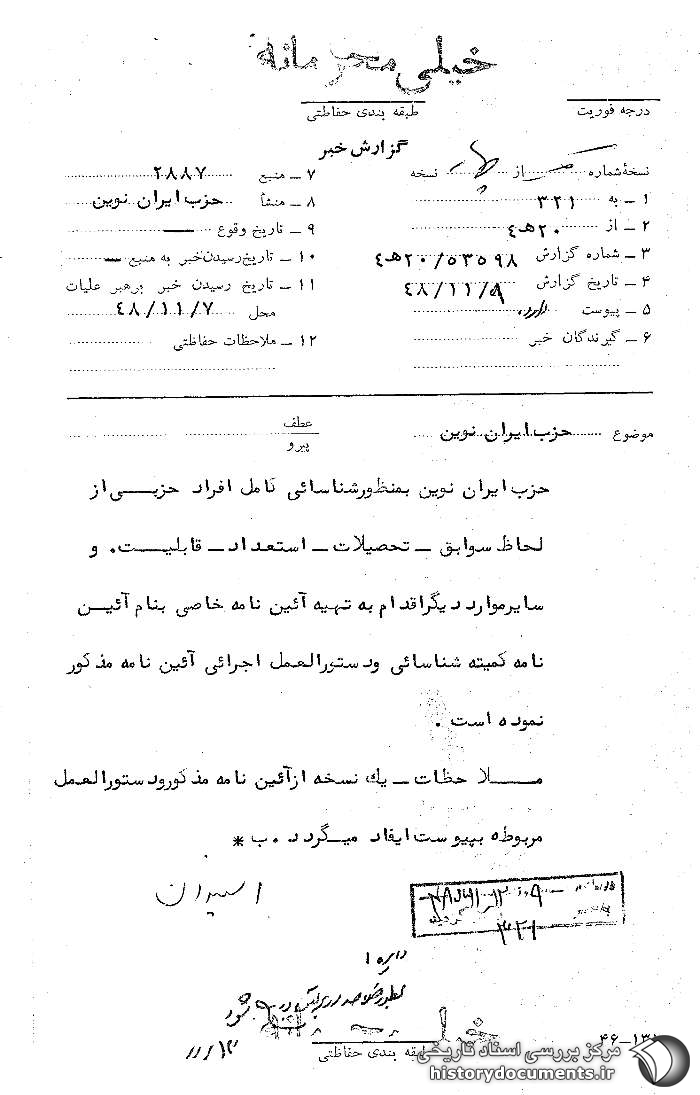 خیلی محرمانه
درجه فوریت
طبقه بندی حفاظتی
گزارش خبر
نسخهٔ شماره ........ از ........ نسخه
۱ ـ به ۳۲۱
۲ ـ از ۲۰ ه‍ ٤
۳ ـ شماره گزارش ۵۳۵۹۸/ ۲۰ ه‍ ٤
٤ ـ تاریخ گزارش ٤٨/١١/٨
۵ ـ پیوست دارد
۶ ـ گیرندگان خبر
۷ ـ منبع ۲۸۸۷
۸ ـ منشأ حزب ایران نوین
۹ ـ تاریخ وقوع ـــ
۱۰ ـ تاریخ رسیدن خبر به منبع ـــ
۱۱ ـ تاریخ رسیدن خبر برهبر عملیات
محل ٤٨/١١/٧
۱۲ ـ ملاحظات حفاظتی
موضوع حزب ایران نوین
عطف
پیرو
حزب ایران نوین بمنظورشناسائی کامل افراد حزبـــی از
لحاظ سوابق ـ تحصیلات ـ استعداد ـ قابلیـــت . و
سایرموارد دیگراقدام به تهیه آئین نامه خاصی بنام آئیـــن
نامه کمیته شناسائی ودستورالعمل اجرائی آئین نامه مذکور
نموده است .
مـــلاحظات ـ یك نسخه ازآئین نامه مذکورودستورالعمل
مربوطه بپیوست ایفاد میگردد .ب *
۳۲۱
دایره ۱
بطور خلاصه در
شود
۱۱/۱۳
طبقه بندی حفاظتی
مرکز بررسی اسناد تاریخی
historydocuments.ir